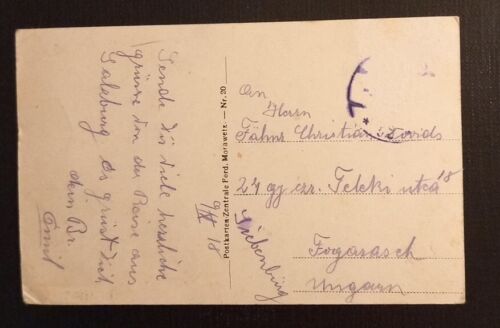 Sende dir viele herzliche
grüsse von der Reise aus
Salzburg es grüst dich
dein Br.
Emil
9/II 18
Postkarten-Zentrale Ferd. Morawetz. — Nr. 20
An
Herrn
Fähnr Christian
24 gj ezr. Teleki utca 18
Siebenbürg
Fogarasch
Ungarn